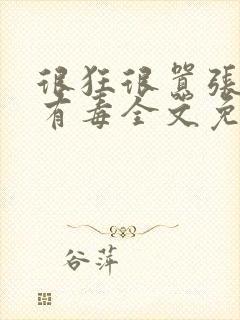 很狂很嚣张
有毒全文免
谷萍